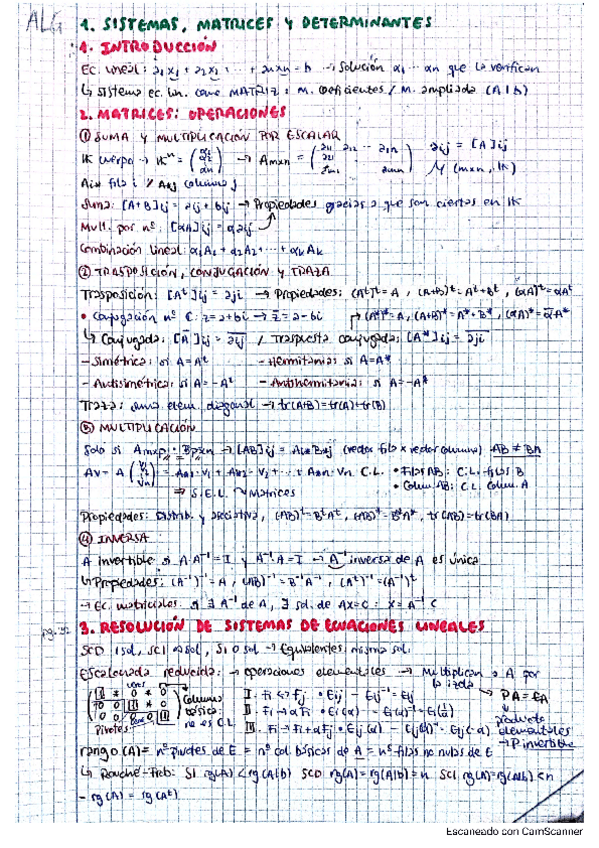 ALG
1. SISTEMAS, MATRICES Y DETERMINANTES
1. INTRODUCCIÓN
Ec. lineal: a₁x₁ + a₂x₂ + ... + aₙxₙ = b → Solución α₁ ... αₙ que la verifican
↳ Sistema ec. lin. como MATRIZ: M. coeficientes / M. ampliada (A|b)
2. MATRICES: OPERACIONES
① SUMA Y MULTIPLICACIÓN POR ESCALAR
IK cuerpo → IKⁿ = → Amxn = aij = [A]ij
M (mxn, IK)
Ai* fila i / A*j columna j
Suma: [A+B]ij = aij + bij → Propiedades gracias a que son ciertas en IK
Mult. por nº: [αA]ij = αaij
Combinación lineal: α₁A₁ + α₂A₂ + ... + αₖAₖ
② TRASPOSICIÓN, CONJUGACIÓN Y TRAZA
Trasposición: [Aᵗ]ij = aji → Propiedades: (Aᵗ)ᵗ = A, (A+B)ᵗ = Aᵗ+Bᵗ, (αA)ᵗ = αAᵗ
• Conjugación nº ℂ: z = a+bi → z̅ = a-bi (A*)* = A, (A+B)* = A*+B*, (αA)* = α̅A*
↳ Conjugada: [A̅]ij = a̅ij / Traspuesta conjugada: [A*]ij = a̅ji
- Simétrica: si A = Aᵗ - Hermitiana: si A = A*
- Antisimétrica: si A = -Aᵗ - Antihermitiana: si A = -A*
Traza: suma elem. diagonal → tr(A+B) = tr(A)+tr(B)
③ MULTIPLICACIÓN
Solo si Amxp · Bpxn → [AB]ij = Ai*B*j (vector fila x vector columna) AB ≠ BA
Av = A = A*1·v₁ + A*2·v₂ + ... + A*n·vn C.L. • Filas AB: C.L. filas B
⇒ S.E.L. → Matrices • Colum. AB: C.L. colum. A
Propiedades: Distrib. y asociativa, (AB)ᵗ = BᵗAᵗ, (AB)* = B*A*, tr(AB) = tr(BA)
④ INVERSA
A invertible si A·A⁻¹ = I y A⁻¹·A = I → A⁻¹ inversa de A es única
↳ Propiedades: (A⁻¹)⁻¹ = A, (AB)⁻¹ = B⁻¹A⁻¹, (Aᵗ)⁻¹ = (A⁻¹)ᵗ
→ Ec. matriciales: si ∃ A⁻¹ de A, ∃ sol. de AX=C: X = A⁻¹C
pg. 32 3. RESOLUCIÓN DE SISTEMAS DE ECUACIONES LINEALES
SCD 1 sol, SCI ∞ sol, SI 0 sol → Equivalentes: misma sol.
Escalonada reducida: → operaciones elementales → Multiplican a A por la izda → PA = EA
Columna básica: no es C.L.
Pivotes
I. Fi ↔ Fj • Eij - Eij⁻¹ = Eij
II. Fi → αFi • Ei(α) - Ei(α)⁻¹ = Ei(1/α)
III. Fi → Fi + αFj • Eij(α) - Eij(α)⁻¹ = Eij(-α)
producto elementales → P invertible
rango (A) = nº pivotes de E = nº col. básicas de A = nº filas no nulas de E
↳ Rouché-Frob: SI rg(A) < rg(A|b) SCD rg(A) = rg(A|b) = n SCI rg(A) = rg(A|b) < n
- rg(A) = rg(Aᵗ)
Escaneado con CamScanner